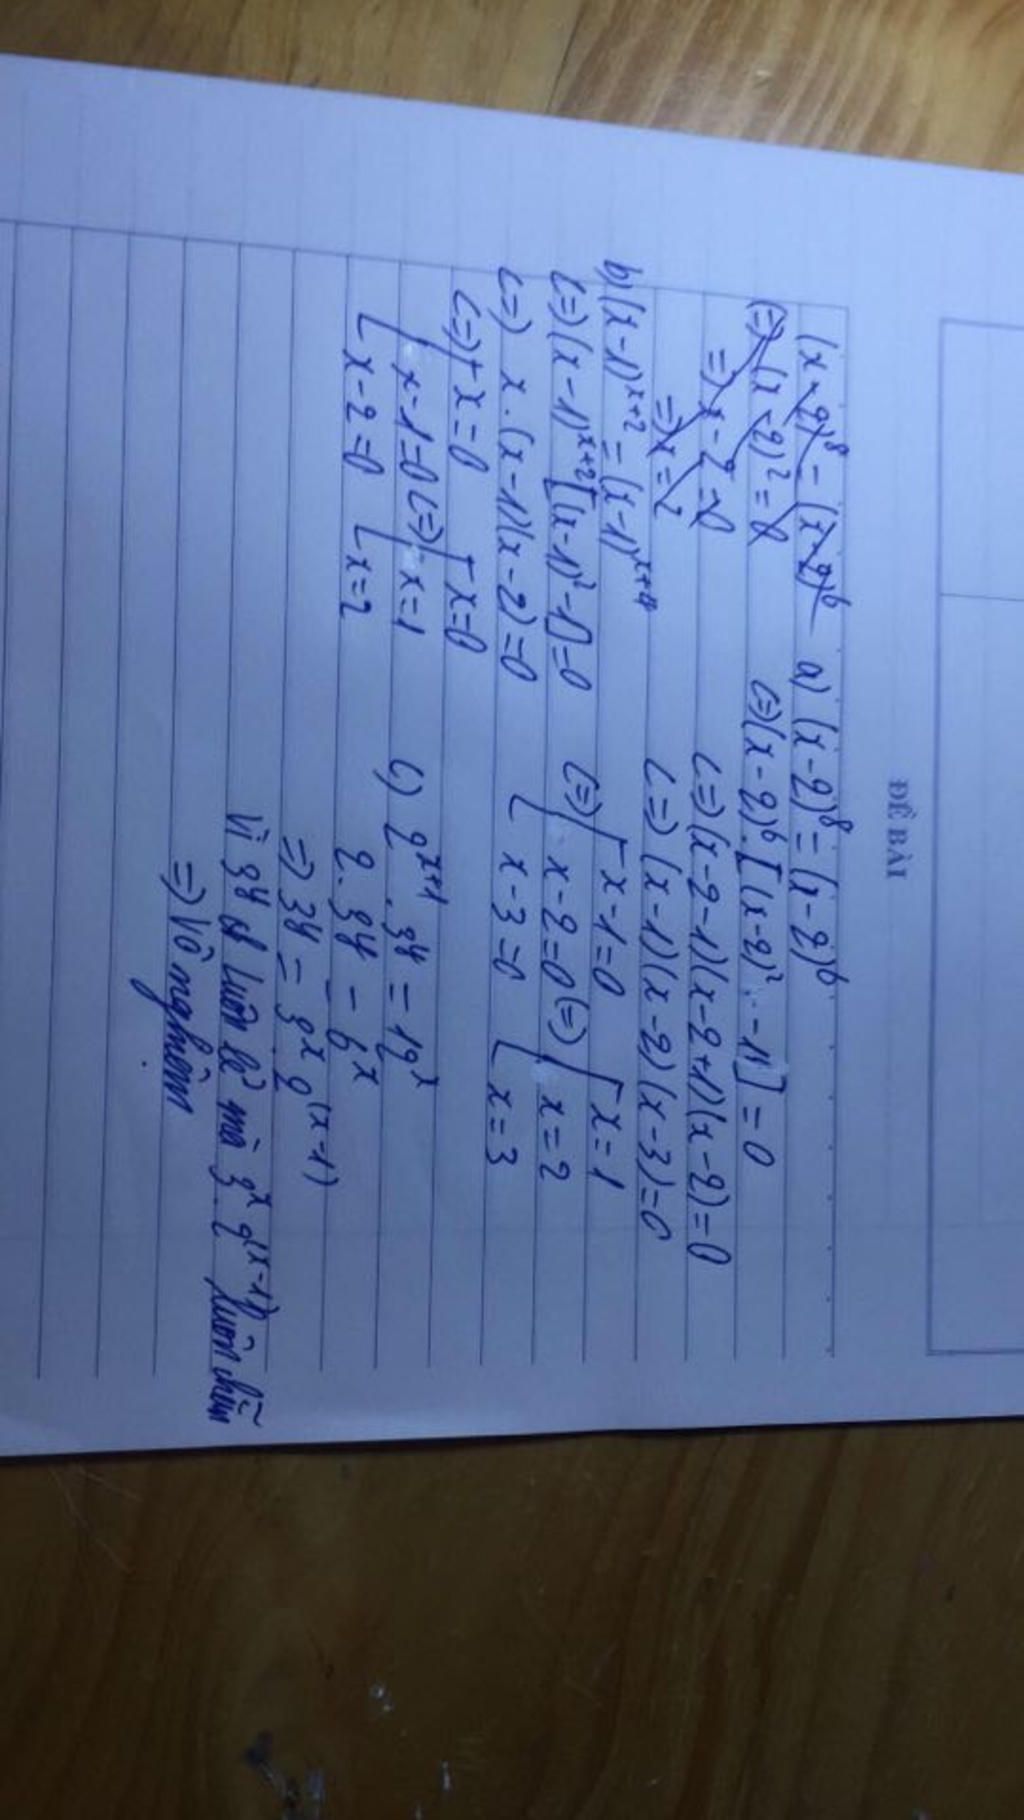 ĐỀ BÀI
(x-2)⁸ = (x-2)⁶
(=) (x-2)² = 0
=) x-2=0
=) x=2
a) (x-2)⁸ = (x-2)⁶
(=)(x-2)⁶.[(x-2)² -1] = 0
(=)(x-2-1)(x-2+1)(x-2)=0
(=) (x-1)(x-2)(x-3)=0
(=) [ x-1=0 [ x=1
x-2=0 (=) x=2
x-3=0 x=3
b) (x-1)ˣ⁺² = (x-1)ˣ⁺⁴
(=)(x-1)ˣ⁺²[(x-1)²-1]=0
(=) x.(x-1)(x-2)=0
(=) x=0 [ x=0
x-1=0 (=) x=1
x-2=0 x=2
c) 2ˣ⁺¹ . 3ʸ = 12ˣ
2.3ʸ = 6ˣ
=) 3ʸ = 3ˣ.2⁽ˣ⁻¹⁾
Vì 3ʸ luôn lẻ mà 3ˣ.2⁽ˣ⁻¹⁾ luôn chẵn
=) Vô nghiệm